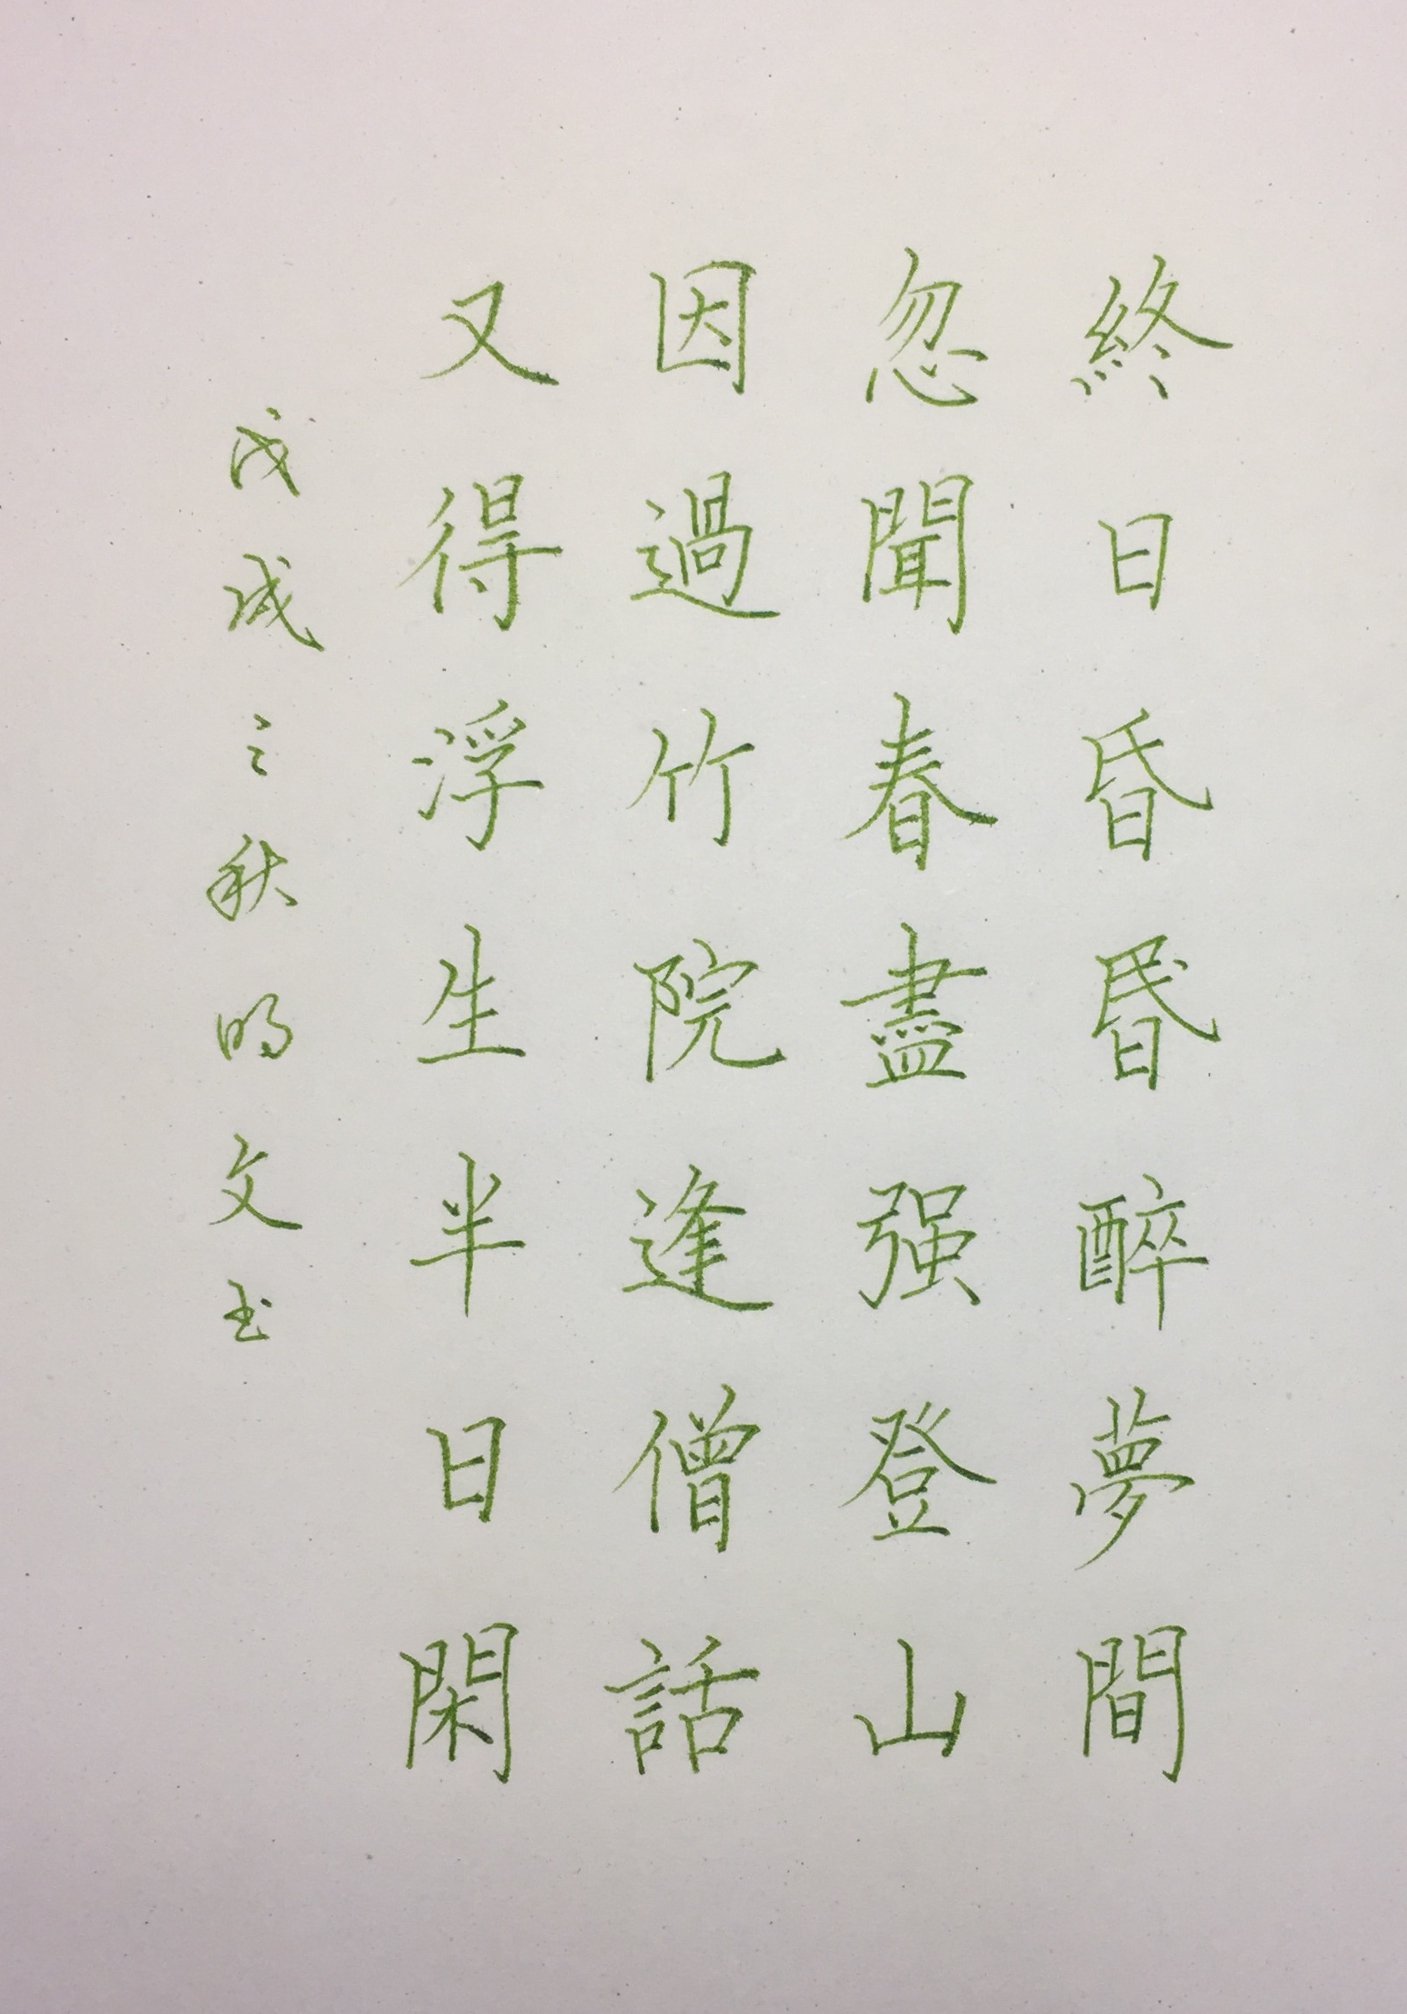 終日昏昏醉夢間
忽聞春盡强登山
因過竹院逢僧話
又得浮生半日閑
戊戌之秋明文书